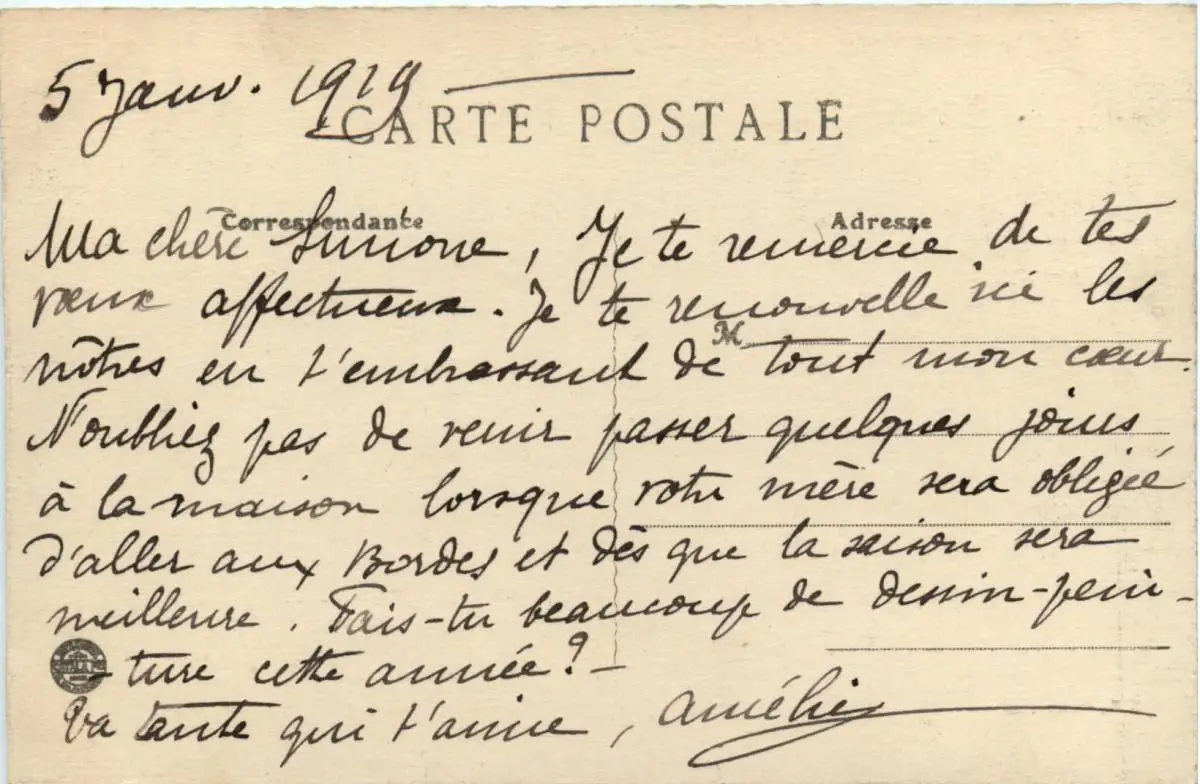 5 Janv. 1919
CARTE POSTALE
Correspondance
Adresse
Ma chère Simone, Je te remercie de tes
vœux affectueux. Je te renouvelle ici les
M
nôtres en t'embrassant de tout mon cœur.
N'oubliez pas de venir passer quelques jours
à la maison lorsque votre mère sera obligée
d'aller aux Bordes et dès que la saison sera
meilleure. Fais-tu beaucoup de dessin-pein-
-ture cette année?-
Ta tante qui t'aime, Amélie